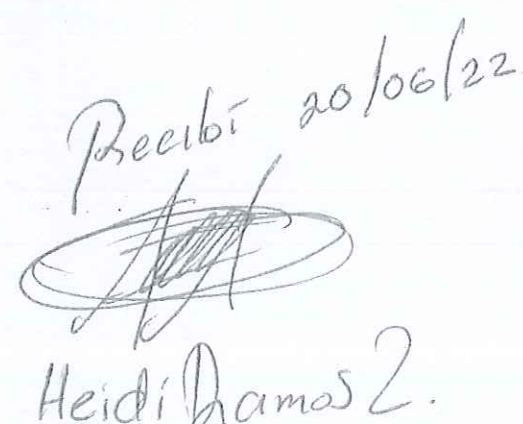 Recibí 20/06/22
Heidi Ramos Z.